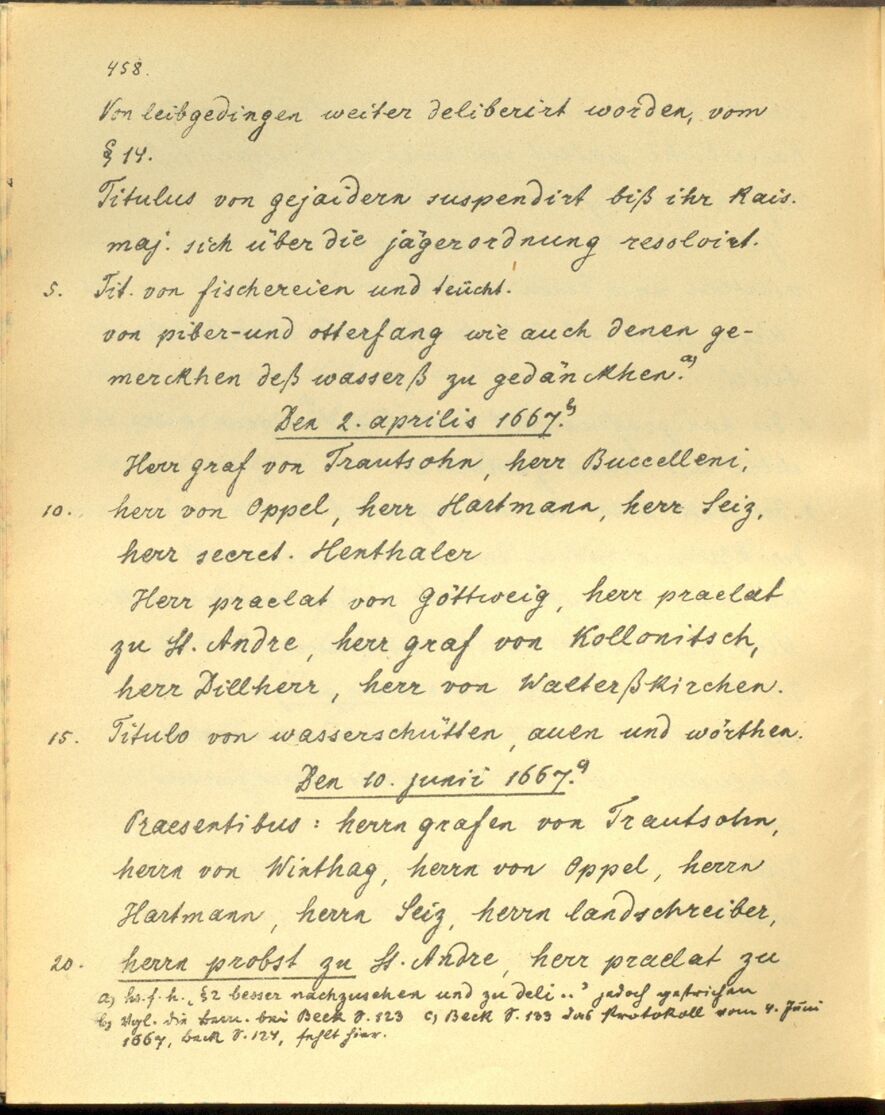 458.
Von leibgedingen weiter deliberirt worden, vom
§ 14.
Titulus von gejaidern suspendirt biß ihr Kais.
maj. sich über die jägerordnung resolvirt.
5. Tit. von fischereien und teücht.
von piber- und otterfang wie auch denen ge-
merckhen deß wasserß zu gedänckhen.a)
Den 2. aprilis 1667.b)
Herr graf von Trautsohn, herr Buccelleni,
10. herr von Oppel, herr Hartmann, herr Seiz,
herr secret. Henthaler
Herr praelat von Göttweig, herr praelat
zu St. Andre, herr graf von Kollonitsch,
herr Dillherr, herr von Walterßkirchen.
15. Titulo von wasserschütten, auen und wörthen.
Den 10. junii 1667.c)
Praesentibus: herrn grafen von Trautsohn,
herrn von Winthag, herrn von Oppel, herrn
Hartmann, herrn Seiz, herrn landschreiber,
20. herrn probst zu St. Andre, herr praelat zu
a) hs. f. h. „§2 besser nachzusehen und zu deli..” jedoch gestrichen
b) Vgl. die bem. bei Beck S. 123 c) Beck S. 133 das Protokoll vom 4. Juni
1667, beck S. 124, fehlt hier.